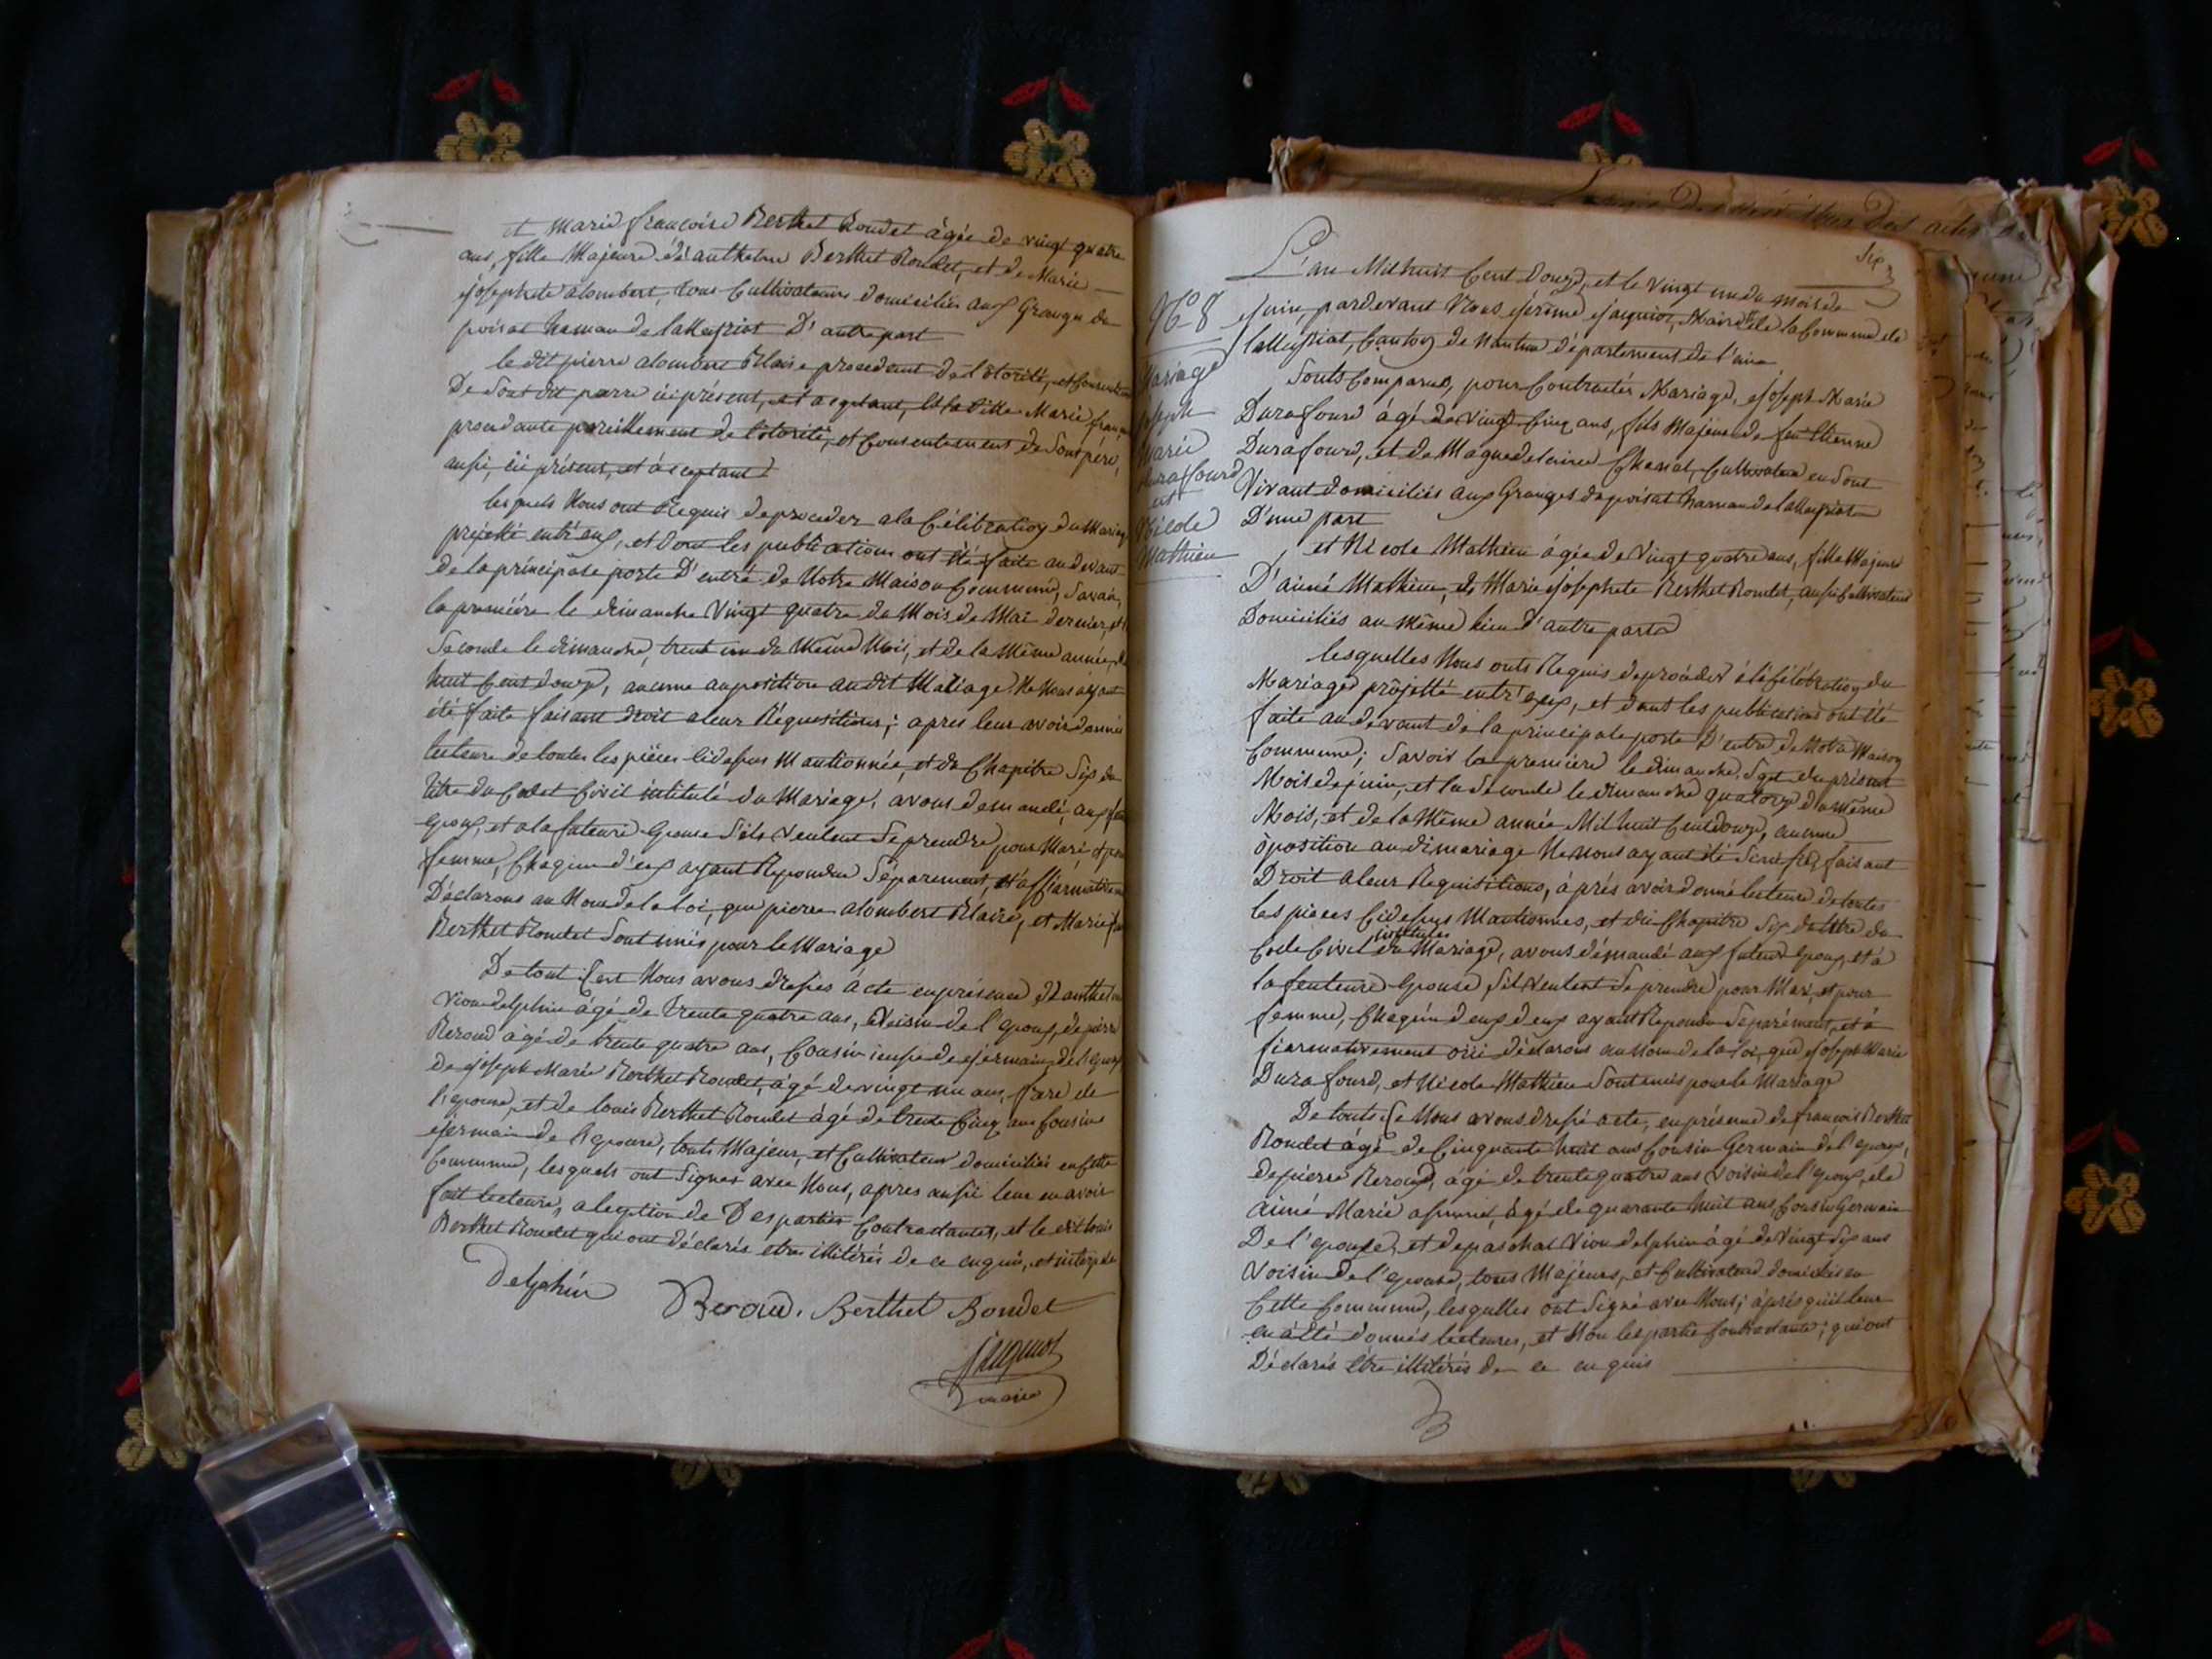 et marie françoise Berthet Bondet âgée de vingt quatre
ans, fille Majeure dé anthelme Berthet Bondet, et de Marie
josephete alombert, tous Cultivateurs domiciliés aux Granges du
poisat hameau de lalleyriat D'autre part
le dit pierre alombert Blaise procedant de l'otorité, et Consentement
De sont dit paere ici présent, et aceptant, et la ditte Marie françoise
procedante pareillement de l'otorité, et Consentement de Sont péré,
aussi, ici présent, et aceptant
lesquels Nous ont Requis de proceder a la Célébration du Mariage
projetté entr'eux, et dont les publications ont été faite au devant
de la principale porte D'entré de Notre Maison Commune, Savoir,
la premiére le dimanche Vingt quatre du Mois de Mai dernier, et la
Seconde le dimanche, trent un du Même Mois, et de la Même année, 
huit Cent douze, aucune auposition audit Mariage Ne Nous ayant
été faite faisant droit a leur Réquisitions; apres leur avoir donné
lecture de toutes les pièces Cidessus Mantionnée, et du Chapitre Six du
titre du Codet Civil intitulé du Mariage, avons demandé, aux
Epoux, et a la futeure Epouse S'ils veulent Se prendre pour Mari et pour
femme, Chaqun d'eux ayant Repondu Séparement, et affiarmativement
Déclarons au Nom de la loi, que pierre alombert Blaise, et Marie
Berthet Bondet Sont unis pour le Mariage
De tout Ceci Nous avons dressés acte en présence D'anthelme
Vion delphin âgé de trente quatre ans, Voisin de l'Epoux, de pierre
Beroud âgé de trente quatre ans, Cousin issus de germain de l'Epoux
De joseph Marie Berthet Bondet, âgé de vingt un ans, frere de
l'epouse, et de louis Berthet Bondet âgé de trente Cinq ans Cousin
germain de l'Epouse, touts Majeur, et Cultivateur domiciliés en cette
Commune, lesquels ont Signés avec Nous, apres aussi leur en avoir
fait lecture, a l'eption de Des parties Contractantes, et le dit louis
Berthet Bondet qui ont déclarés etres illitérés de ce enquis, et interpelé
Delphin Beroud. Berthet Bondet
Jacquiot
maire
Six
L'an Mil huit Cent Douze, et le Vingt un du mois de
N° 8
juin, pardevant Nous jérôme jacquiot, Maire de la Commune de
lalleyriat, Canton de Nantua département de l'ain
Mariage
joseph
Marie
Duraffourd
et
Nicole
Mathieu
Sonts Comparus, pour Contracter Mariage, joseph Marie
Durafourd âgé de Vingt Cinq ans, fils Majeur de feu Etienne
Durafourd, et de Maguedelaine Chanal, Cultivateur en Sont
Vivant domiciliés aux Granges du poisat hameau de lalleyriat
D'une part
et Nicole Mathieu âgée de Vingt quatre ans, fille Majeure
D'aimé Mathieu, et Marie josephete Berthet Bondet, aussi Cultivateur
Domiciliés au même lieu d'autre parts
lesquelles Nous onts Requis de procéder à la Célébration du
Mariage projetté entr'eux, et dont les publications ont été
faite au devant de la principale porte D'entré de Notre Maison
Commune; Savoir la premiére le dimanche Sept du présent
Mois de juin, et la Seconde le dimanche quatorze du même
Mois, et de la Même année Mil huit Cent douze, aucune
oposition au dimariage Ne nous ayant été Signifiez faisant
Droit a leur Requisitions, aprés avoir donné lecture de toutes
les pieces Cidessus Mantionnes, et du Chapitre Six du titre du
intitulés
Code Civil du Mariage, avons démandé aux futeurs Epoux, et à
la feuteure Epouse, S'il veulent Se prendre pour Mari, et pour
femme, Chaqun deux d'eux ayant Repondu Séparément, et à
fiarmativement oui déclarons au Nom de la loi, que joseph Marie
Durafourd, et Nicole Mathieu Sont unis pour le Mariage
De touts Ce Nous avons dressé acte, en présence de françois Berthet
Bondet âgé de Cinquante huit ans Cousin Germain de l'epoux,
de pierre Beroud, âgé de trente quatre ans Voisin de l'epoux, de
aimé Marie âgé de quarante huit ans, Cousin Germain
De l'epouse, et de paschal Vion delphin âgé de Vingt Six ans
Voisin de l'epouse, tous Majeurs, et Cultivateurs domiciliés en
Cette Commune, lesquelles ont Signé avec Nous; après qu'il leur
en a été donnés lectures, et Non les partie Contractante; qui ont
Déclarés être illitérés de ce enquis